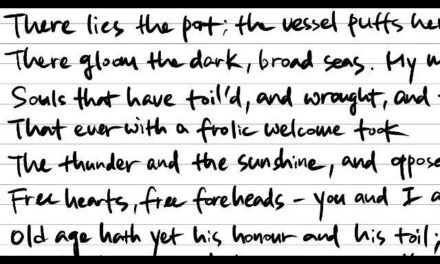 There lies the port; the vessel puffs her
There gloom the dark, broad seas. My m
Souls that have toil'd, and wrought, and
That ever with a frolic welcome took
The thunder and the sunshine, and oppose
Free hearts, free foreheads - you and I a
Old age hath yet his honour and his toil;